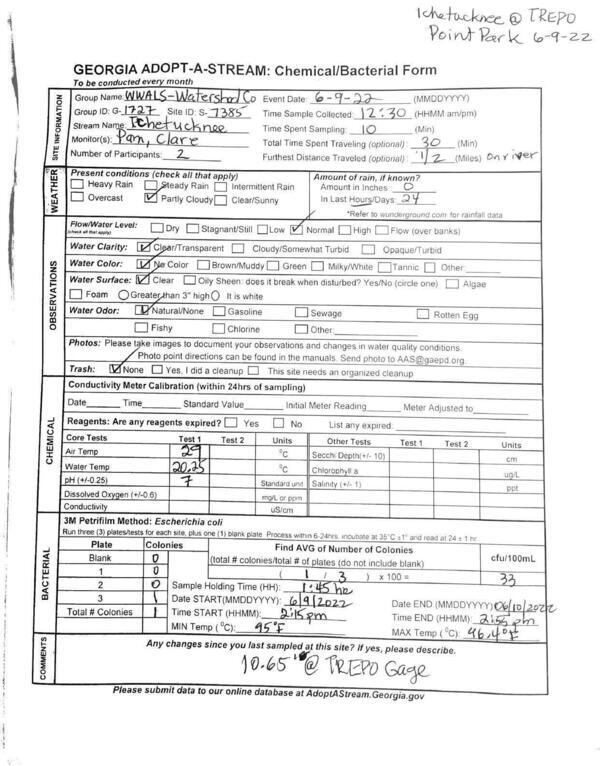 Ichetucknee @ TREPO
Point Park 6-9-22
GEORGIA ADOPT-A-STREAM: Chemical/Bacterial Form
To be conducted every month
SITE INFORMATION
Group Name: WWALS-Watershed Co Event Date: 6-9-22 (MMDDYYYY)
Group ID: G-1727 Site ID: S-7385 Time Sample Collected: 12:30 (HHMM am/pm)
Stream Name: Ichetucknee Time Spent Sampling: 10 (Min)
Monitor(s): Pam, Clare Total Time Spent Traveling (optional): 30 (Min)
Number of Participants: 2 Furthest Distance Traveled (optional): 1/2 (Miles) on river
WEATHER
Present conditions (check all that apply) Amount of rain, if known?
Heavy Rain Steady Rain Intermittent Rain Amount in Inches 0
Overcast Partly Cloudy Clear/Sunny In Last Hours/Days: 24
*Refer to wunderground.com for rainfall data
OBSERVATIONS
Flow/Water Level: Dry Stagnant/Still Low Normal High Flow (over banks)
(check all that apply)
Water Clarity: Clear/Transparent Cloudy/Somewhat Turbid Opaque/Turbid
Water Color: No Color Brown/Muddy Green Milky/White Tannic Other:
Water Surface: Clear Oily Sheen: does it break when disturbed? Yes/No (circle one) Algae
Foam Greater than 3" high It is white
Water Odor: Natural/None Gasoline Sewage Rotten Egg
Fishy Chlorine Other:
Photos: Please take images to document your observations and changes in water quality conditions.
Photo point directions can be found in the manuals. Send photo to AAS@gaepd.org.
Trash: None Yes, I did a cleanup This site needs an organized cleanup
CHEMICAL
Conductivity Meter Calibration (within 24hrs of sampling)
Date Time Standard Value Initial Meter Reading Meter Adjusted to
Reagents: Are any reagents expired? Yes No List any expired:
Core Tests Test 1 Test 2 Units Other Tests Test 1 Test 2 Units
Air Temp 29 °C Secchi Depth(+/- 10) cm
Water Temp 20.25 °C Chlorophyll a ug/L
pH (+/-0.25) 7 Standard unit Salinity (+/- 1) ppt
Dissolved Oxygen (+/-0.6) mg/L or ppm
Conductivity uS/cm
BACTERIAL
3M Petrifilm Method: Escherichia coli
Run three (3) plates/tests for each site, plus one (1) blank plate. Process within 6-24hrs, incubate at 35°C ±1° and read at 24 ± 1 hr
Plate Colonies Find AVG of Number of Colonies cfu/100mL
Blank 0 (total # colonies/total # of plates (do not include blank)
1 0 ( 1 / 3 ) x 100 = 33
2 0 Sample Holding Time (HH): 1:45 hr
3 1 Date START(MMDDYYYY): 6/9/2022 Date END (MMDDYYYY) 06/10/2022
Total # Colonies 1 Time START (HHMM): 2:15 pm Time END (HHMM): 2:55 pm
MIN Temp (°C): 95°F MAX Temp (°C): 96.4°F
COMMENTS
Any changes since you last sampled at this site? If yes, please describe.
10.65' @ TREPO Gage
Please submit data to our online database at AdoptAStream.Georgia.gov